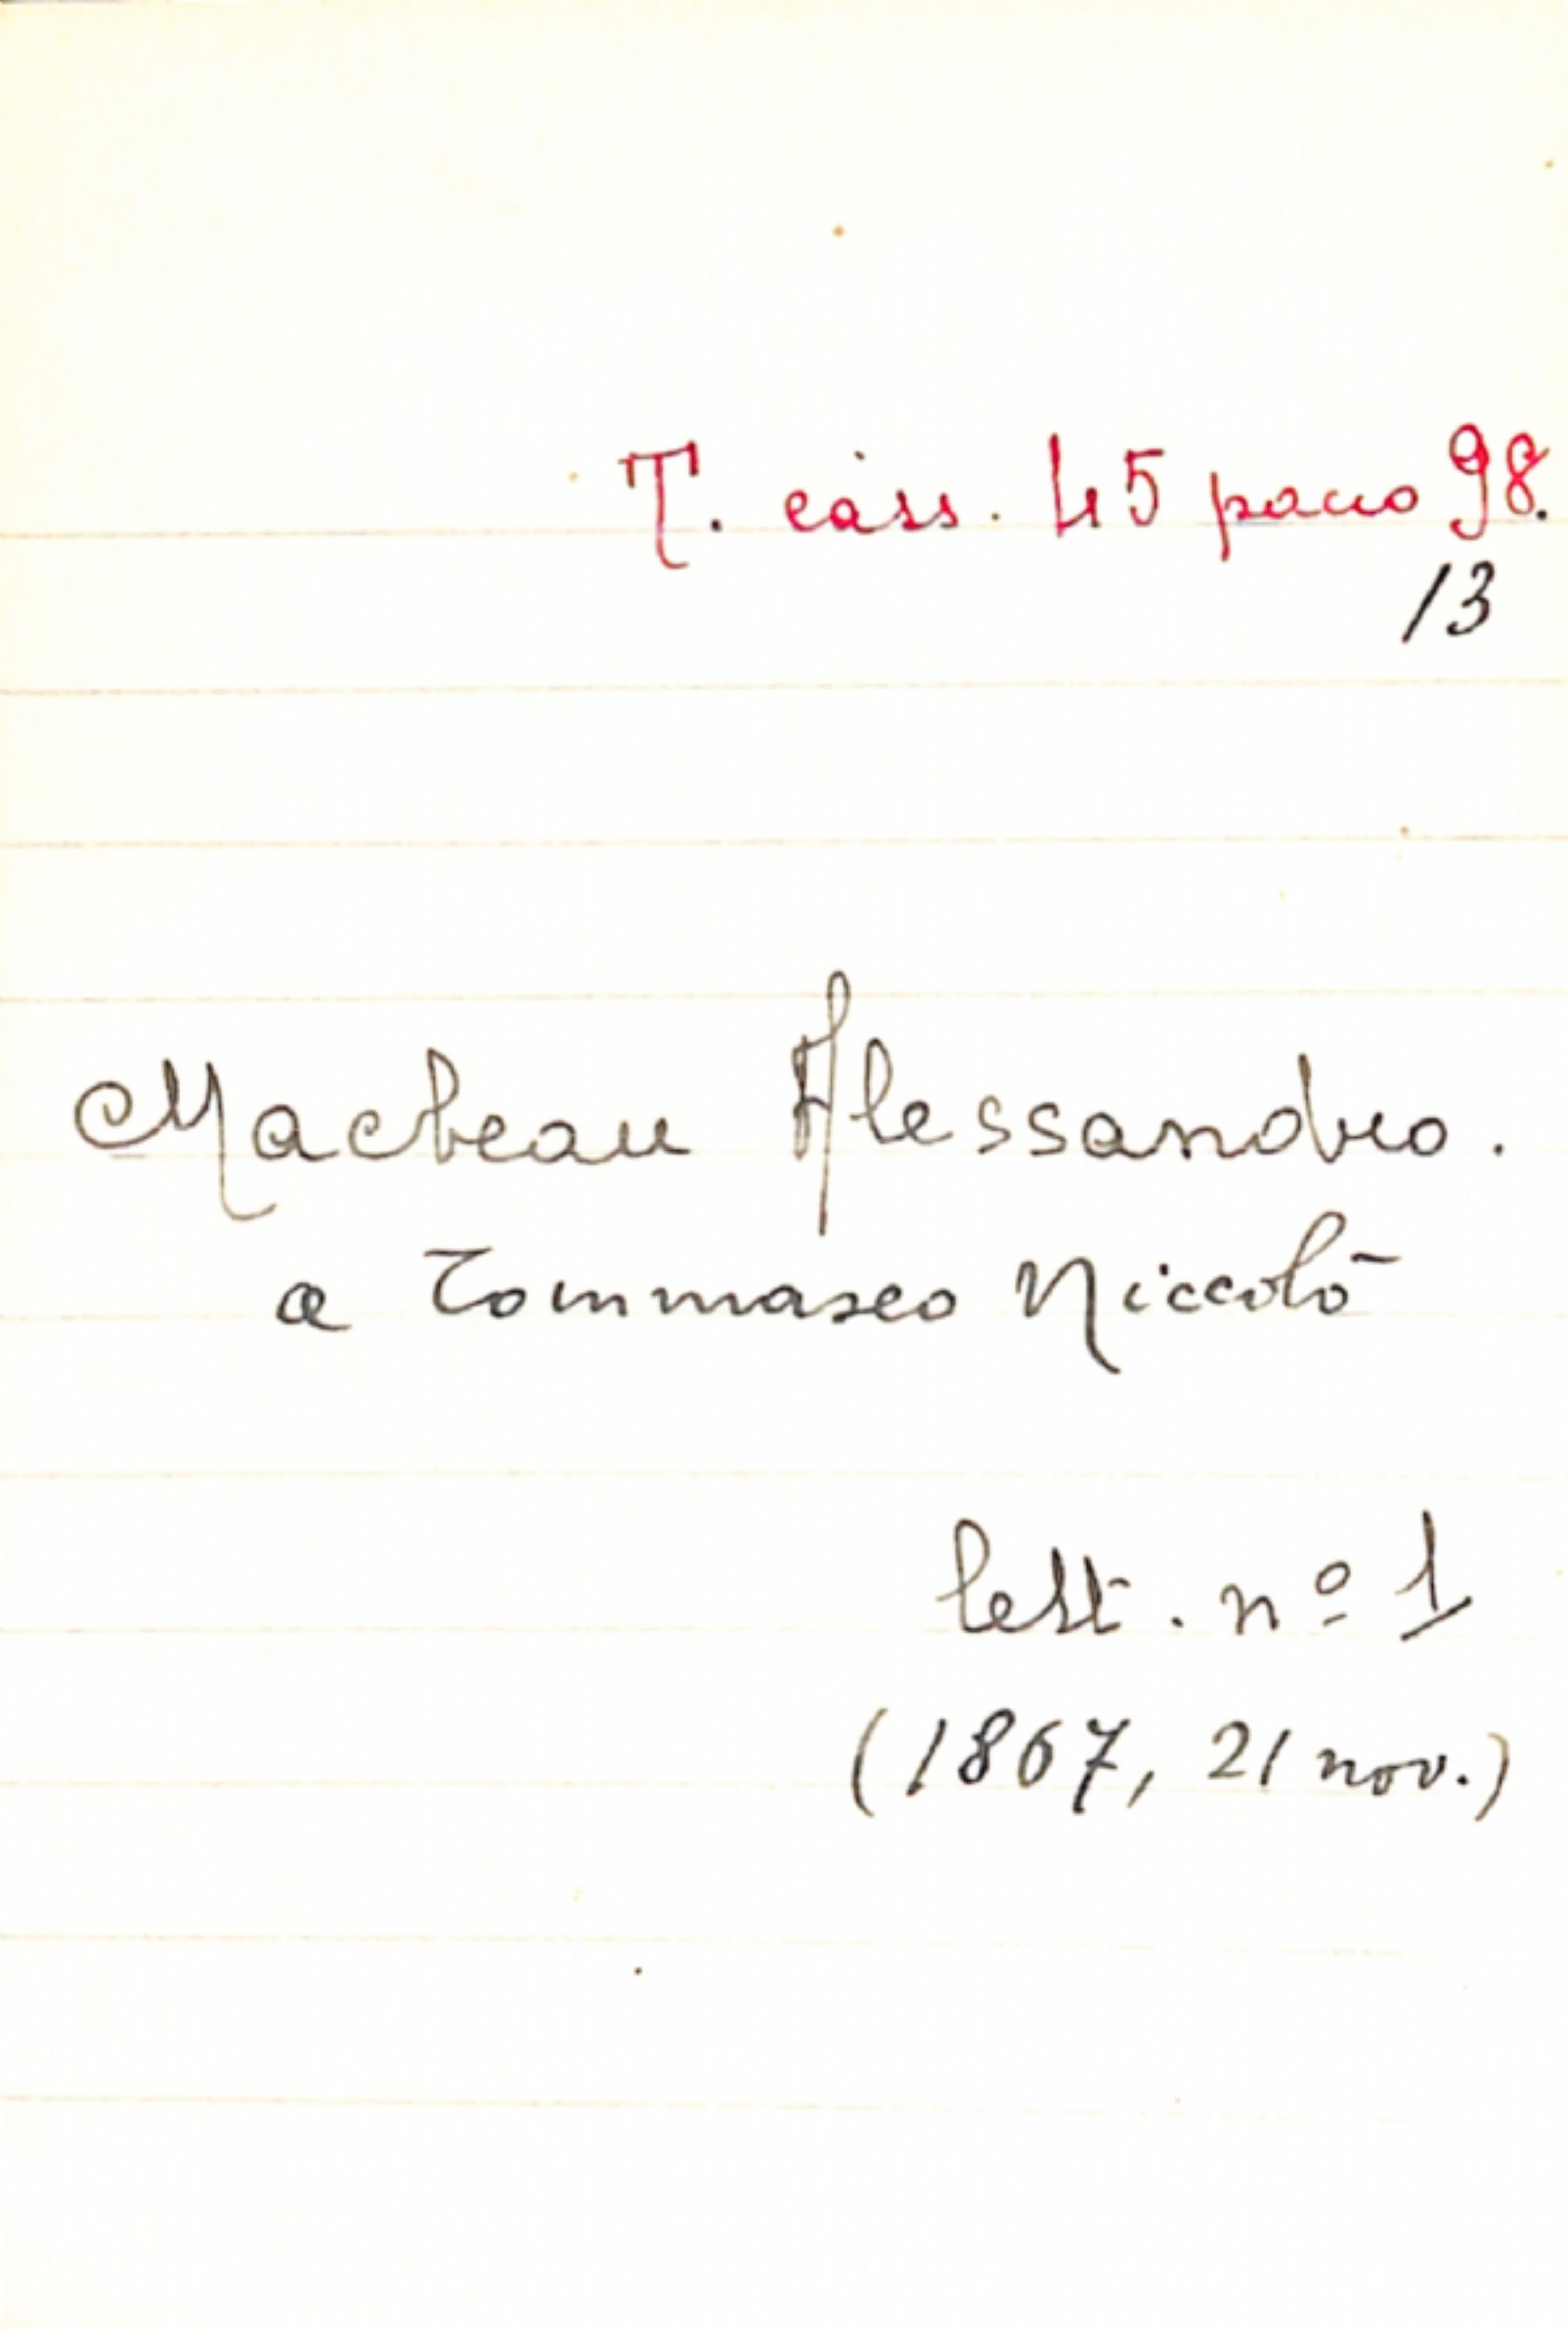 T. cass. 45 pacco 98.
13
Macbean Alessandro.
a Tommaseo Niccolò
lett. nº 1
(1867, 21 nov.)